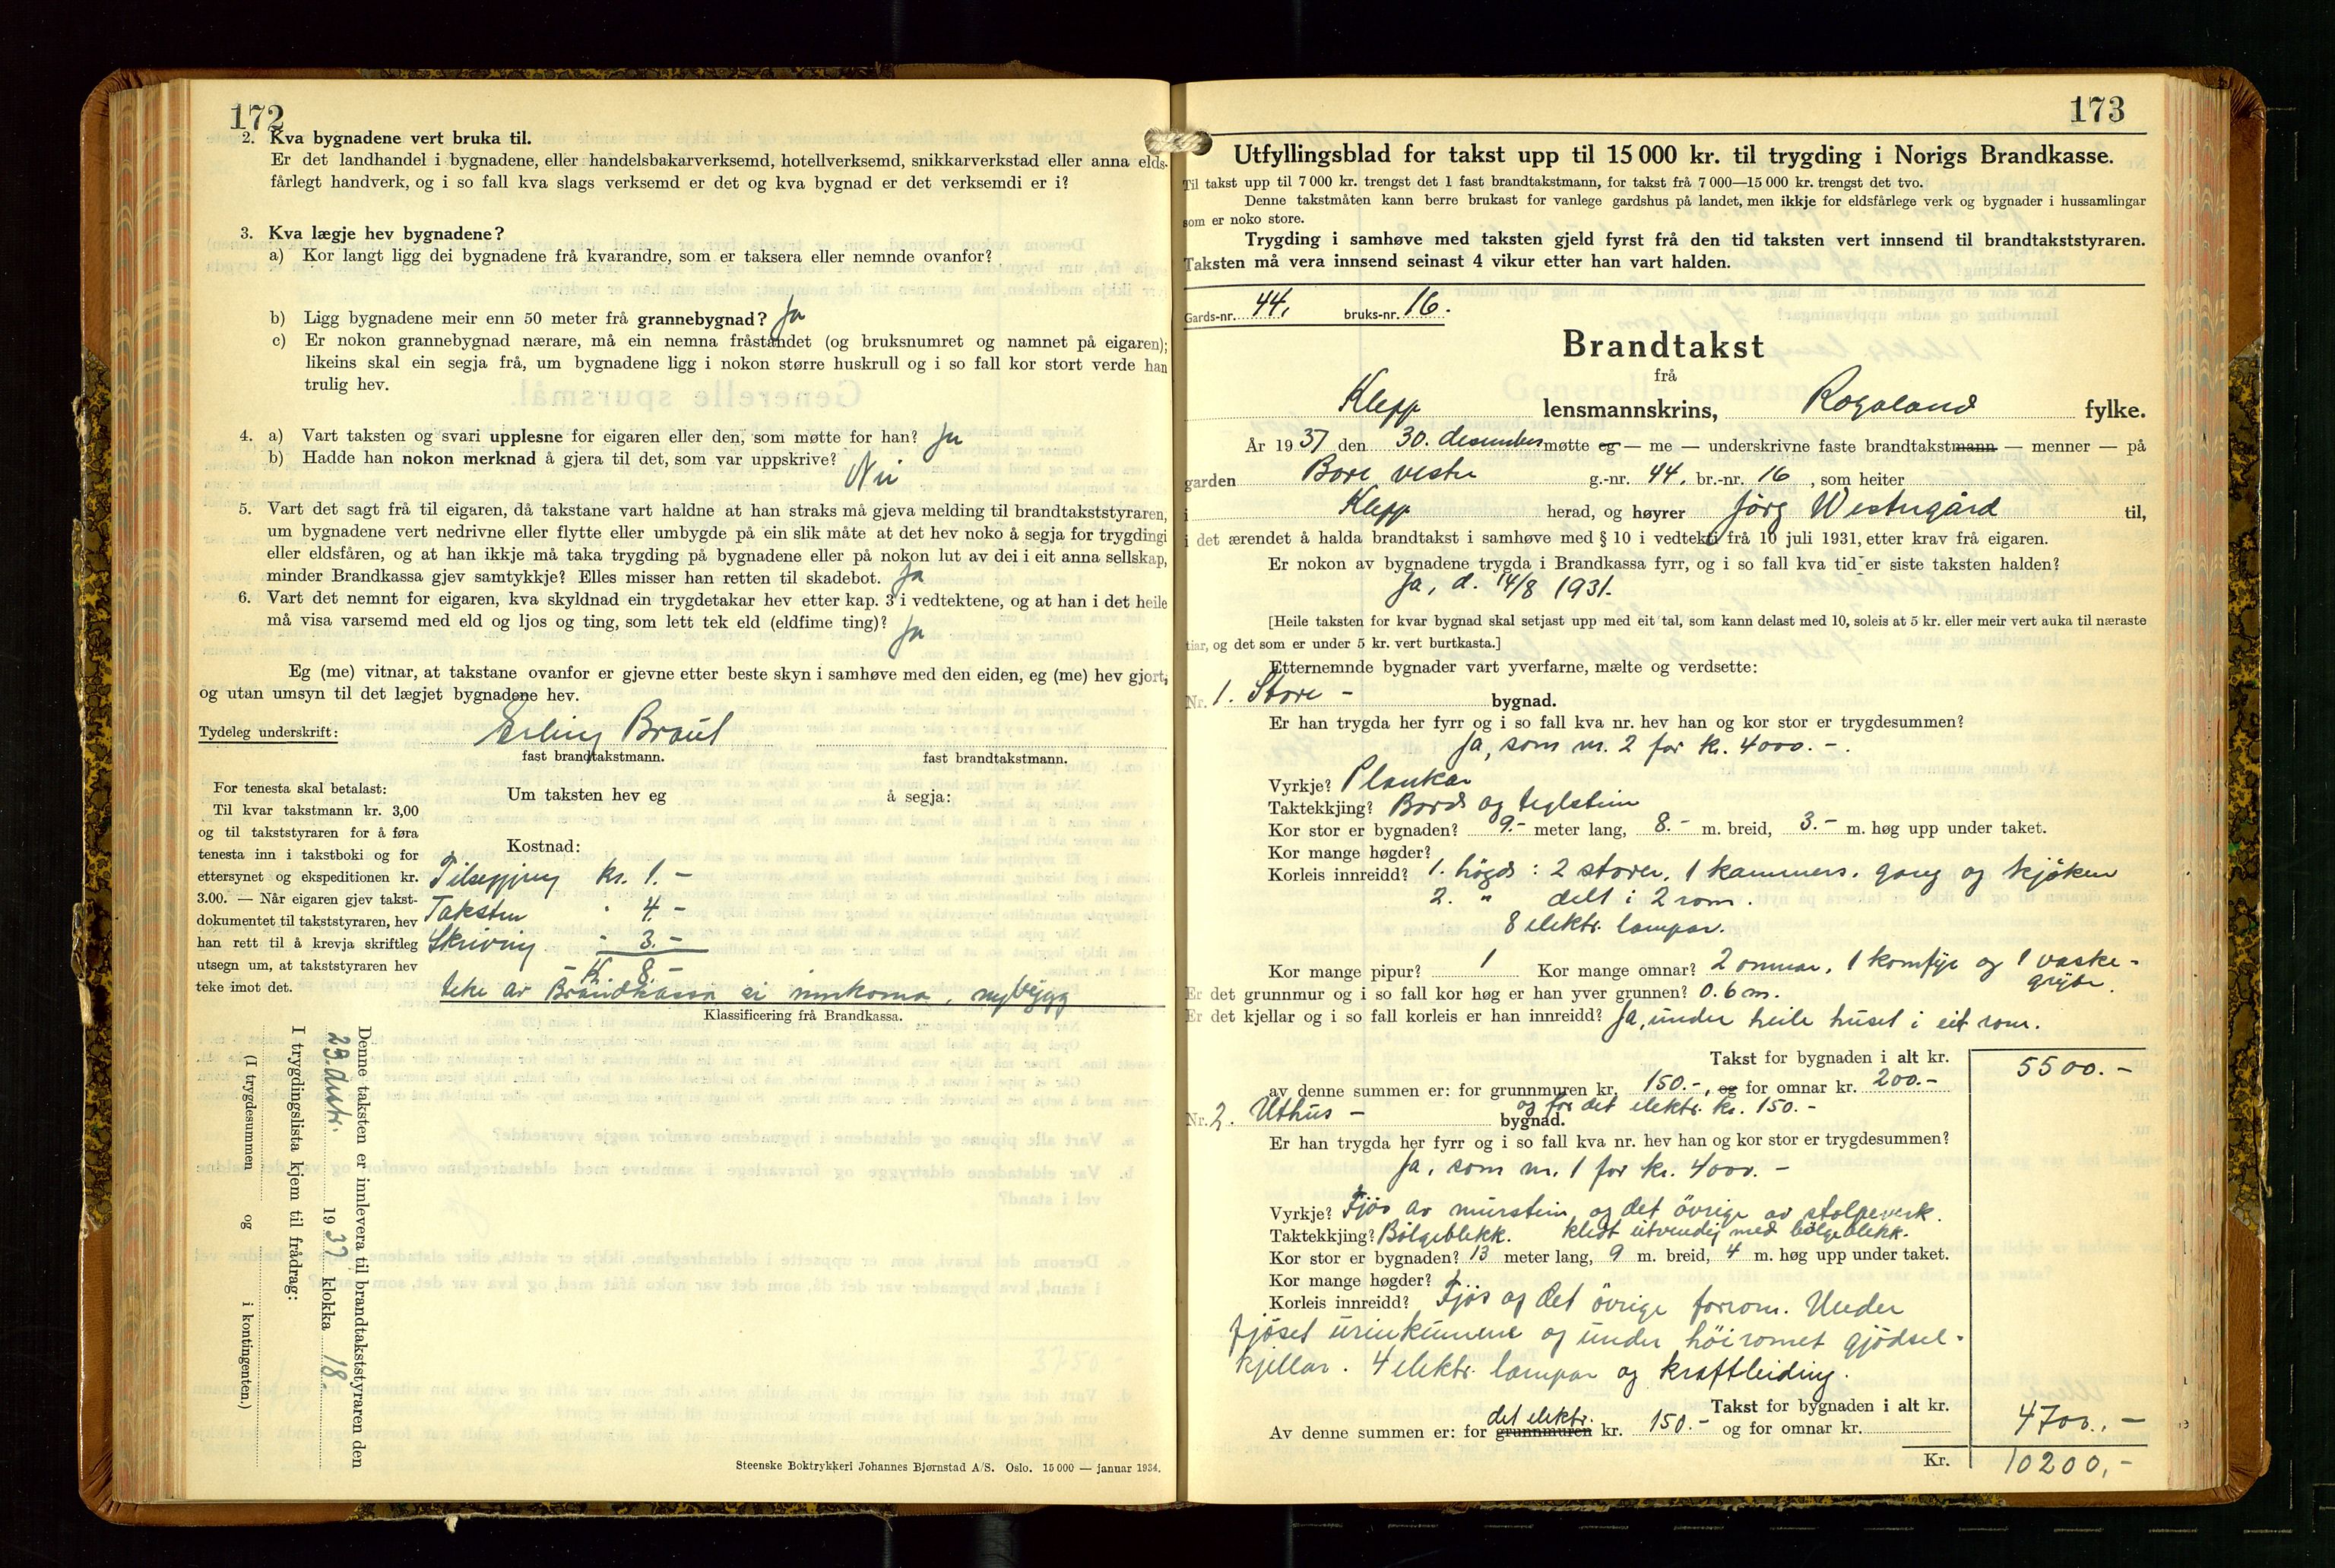 172
2. Kva bygnadene vert bruka til.
Er det landhandel i bygnadene, eller handelsbakarverksemd, hotellverksemd, snikkarverkstad eller anna elds-
fårlegt handverk, og i so fall kva slags verksemd er det og kva bygnad er det verksemdi er i?
3. Kva lægje hev bygnadene?
a) Kor langt ligg dei bygnadene frå kvarandre, som er taksera eller nemnde ovanfor?
b) Ligg bygnadene meir enn 50 meter frå grannebygnad? Ja
c) Er nokon grannebygnad nærare, må ein nemna fråstandet (og bruksnumret og namnet på eigaren);
likeins skal ein segja frå, um bygnadene ligg i nokon større huskrull og i so fall kor stort verde han
trulig hev.
4. a) Vart taksten og svari upplesne for eigaren eller den, som møtte for han? Ja
b) Hadde han nokon merknad å gjera til det, som var uppskrive? Nei
5. Vart det sagt frå til eigaren, då takstane vart haldne at han straks må gjeva melding til brandtakststyraren,
um bygnadene vert nedrivne eller flytte eller umbygde på ein slik måte at det hev noko å segja for trygdingi
eller eldsfåren, og at han ikkje må taka trygding på bygnadene eller på nokon lut av dei i eit anna sellskap,
minder Brandkassa gjev samtykkje? Elles misser han retten til skadebot. Ja
6. Vart det nemnt for eigaren, kva skyldnad ein trygdetakar hev etter kap. 3 i vedtektene, og at han i det heile
må visa varsemd med eld og ljos og ting, som lett tek eld (eldfime ting)? Ja
Eg (me) vitnar, at takstane ovanfor er gjevne etter beste skyn i samhøve med den eiden, eg (me) hev gjort,
og utan umsyn til det lægjet bygnadene hev.
Tydeleg underskrift: Erling Braut
fast brandtakstmann. fast brandtakstmann.
For tenesta skal betalast:
Til kvar takstmann kr. 3,00
og til takststyraren for å føra
tenesta inn i takstboki og for
ettersynet og ekspeditionen kr.
3.00. — Når eigaren gjev takst-
dokumentet til takststyraren, hev
han rett til å krevja skriftleg
utsegn um, at takststyraren hev
teke imot det.
Um taksten hev eg å segja:
Kostnad:
Tilsegjing kr. 1.-
Taksten " 4.-
Skriving " 3.-
Kr. 8.-
teke av Brandkassa ei innkoma, nybygg
Klassificering frå Brandkassa.
Denne taksten er innlevera til brandtakststyraren den
29. destr. 1937 klokka 18.
I trygdingslista kjem til frådrag:
(I trygdesummen og i kontingenten.)
Steenske Boktrykkeri Johannes Bjørnstad A/S. Oslo. 15 000 — januar 1934.
173
Utfyllingsblad for takst upp til 15 000 kr. til trygding i Norigs Brandkasse.
Til takst upp til 7 000 kr. trengst det 1 fast brandtakstmann, for takst frå 7 000—15 000 kr. trengst det tvo.
Denne takstmåten kann berre brukast for vanlege gardshus på landet, men ikkje for eldsfårlege verk og bygnader i hussamlingar
som er noko store.
Trygding i samhøve med taksten gjeld fyrst frå den tid taksten vert innsend til brandtakststyraren.
Taksten må vera innsend seinast 4 vikur etter han vart halden.
Gards-nr. 44, bruks-nr. 16.
Brandtakst
frå
Klepp lensmannskrins, Rogaland fylke.
År 1937 den 30. desember møtte eg — me — underskrivne faste brandtakstmann — menner — på
garden Bore vestre g.-nr. 44, br.-nr. 16, som heiter
i Klepp herad, og høyrer Jörg Westergård til,
i det ærendet å halda brandtakst i samhøve med § 10 i vedtekti frå 10 juli 1931, etter krav frå eigaren.
Er nokon av bygnadene trygda i Brandkassa fyrr, og i so fall kva tid er siste taksten halden?
Ja, d. 14/8 1931.
[Heile taksten for kvar bygnad skal setjast upp med eit tal, som kann delast med 10, soleis at 5 kr. eller meir vert auka til næraste
tiar, og det som er under 5 kr. vert burtkasta.]
Etternemnde bygnader vart yverfarne, mælte og verdsette:
Nr. 1. Store - bygnad.
Er han trygda her fyrr og i so fall kva nr. hev han og kor stor er trygdesummen?
Ja, som nr. 2 for kr. 4000.-.
Vyrkje? Plankar
Taktekkjing? Bord og teglstein
Kor stor er bygnaden? 9.- meter lang, 8.- m. breid, 3.- m. høg upp under taket.
Kor mange høgder?
Korleis innreidd? 1. högd: 2 stover, 1 kammers, gang og kjöken
2. " delt i 2 rom.
8 elektr. lampar.
Kor mange pipur? 1 Kor mange omnar? 2 omnar, 1 komfyr og 1 vaske-
gryte.
Er det grunnmur og i so fall kor høg er han yver grunnen? 0.6 m.
Er det kjellar og i so fall korleis er han innreidd? Ja, under heile huset i eit rom.
Takst for bygnaden i alt kr. 5500.-
av denne summen er: for grunnmuren kr. 150.-, og for omnar kr. 200.-
og for det elektr. kr. 150.-
Nr. 2. Uthus - bygnad.
Er han trygda her fyrr og i so fall kva nr. hev han og kor stor er trygdesummen?
Ja, som nr. 1 for kr. 4000.-
Vyrkje? Fjös av murstein og det övrige av stolpeverk.
Taktekkjing? Bölgeblekk. kledt utvendig med bölgeblekk.
Kor stor er bygnaden? 13 meter lang, 9 m. breid, 4 m. høg upp under taket.
Kor mange høgder?
Korleis innreidd? Fjös og det övrige forrom. Under
fjöset urinkummene og under höiromet gjödsel-
kjellar. 4 elektr. lampar og kraftleiding.
Takst for bygnaden i alt kr. 4700,-
Av denne summen er: for grunnmuren det elektr. kr. 150.- og for omnar kr.
Kr. 10200,-